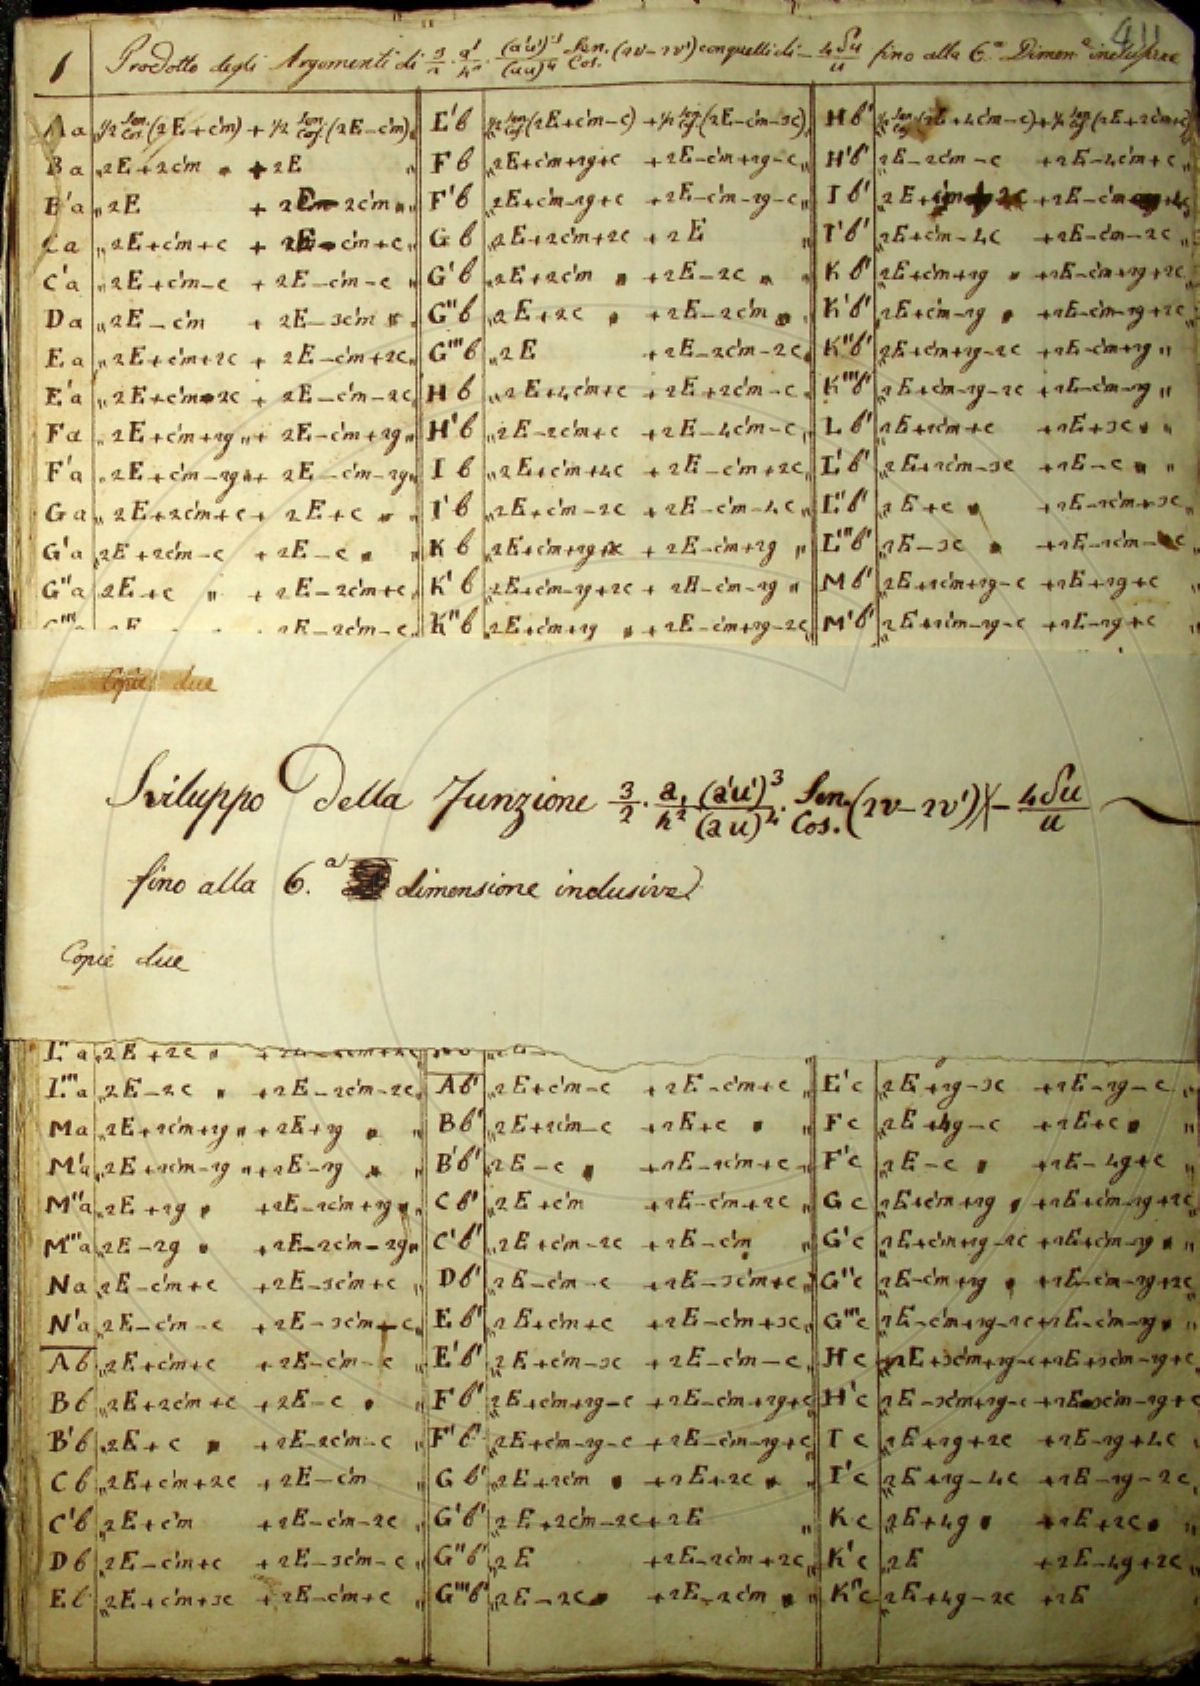 411
1 Prodotto degli Argomenti di 3/2 · a'/h² · (a'u')³/(au)⁴ Sen./Cos. (2v−2v') con quelli di − 4δu/u fino alla 6.ª Dimen.e inclusive
Aa ½ Sen./Cos. (2E+c'm) + ½ Sen./Cos. (2E−c'm) E'b ½ Sen./Cos. (2E+c'm−c) + ½ Sen./Cos. (2E−c'm−3c) Hb'
Ba " 2E+2c'm " + 2E " Fb " 2E+c'm+2y+c + 2E−c'm+2y−c " H'b' " 2E−2c'm−c + 2E−4c'm+c "
B'a " 2E + 2E−2c'm " F'b " 2E+c'm−2y+c + 2E−c'm−2y−c " Ib' " 2E
Ca " 2E+c'm+c + 2E−c'm+c " Gb " 2E+2c'm+2c + 2E " I'b' " 2E+c'm−4c + 2E−c'm−2c "
C'a " 2E+c'm−c + 2E−c'm−c " G'b " 2E+2c'm " + 2E−2c " Kb' " 2E+c'm+2y " + 2E−c'm+2y+2c
Da " 2E−c'm + 2E−3c'm " G''b " 2E+2c " + 2E−2c'm " K'b' " 2E+c'm−2y " + 2E−c'm−2y+2c
Ea " 2E+c'm+2c + 2E−c'm+2c " G'''b " 2E + 2E−2c'm−2c " K''b' " 2E+c'm+2y−2c + 2E−c'm+2y "
E'a " 2E+c'm−2c + 2E−c'm−2c " Hb " 2E+4c'm+c + 2E+2c'm−c " K'''b' " 2E+c'm−2y−2c + 2E−c'm−2y "
Fa " 2E+c'm+2y " + 2E−c'm+2y " H'b " 2E−2c'm+c + 2E−4c'm−c " Lb' " 2E+2c'm+c + 2E+3c "
F'a " 2E+c'm−2y " + 2E−c'm−2y " Ib " 2E+c'm+4c + 2E−c'm+2c " L'b' " 2E+2c'm−3c + 2E−c "
Ga " 2E+2c'm+c + 2E+c " I'b " 2E+c'm−2c + 2E−c'm−4c " L''b' " 2E+c " + 2E−2c'm+3c "
G'a " 2E+2c'm−c + 2E−c " Kb " 2E+c'm+2y+2c + 2E−c'm+2y " L'''b' " 2E−3c " + 2E−2c'm−c "
G''a " 2E+c " + 2E−2c'm+c " K'b " 2E+c'm−2y+2c + 2E−c'm−2y " Mb' " 2E+2c'm+2y−c + 2E+2y+c "
G'''a 2E + 2E−2c'm−c " K''b " 2E+c'm+2y " + 2E−c'm+2y−2c M'b' " 2E+2c'm−2y−c + 2E−2y+c "
Copie due
Sviluppo Della Funzione 3/2 · a,/h² (a'u')³/(au)⁴ · Sen./Cos. (2v−2v') × − 4δu/u
fino alla 6.ª dimensione inclusive
Copie due
L''a " 2E+2c "
L'''a " 2E−2c " + 2E−2c'm−2c " Ab' " 2E+c'm−c + 2E−c'm+c " E'c " 2E+2y−3c + 2E−2y−c "
Ma " 2E+2c'm+2y " + 2E+2y " Bb' " 2E+2c'm−c + 2E+c " Fc " 2E+4y−c + 2E+c "
M'a " 2E+2c'm−2y " + 2E−2y " B'b' " 2E−c " + 2E−2c'm+c " F'c " 2E−c " + 2E−4y+c "
M''a " 2E+2y " + 2E−2c'm+2y " Cb' " 2E+c'm + 2E−c'm+2c " Gc " 2E+c'm+2y " + 2E+c'm−2y+2c
M'''a " 2E−2y " + 2E−2c'm−2y " C'b' " 2E+c'm−2c + 2E−c'm " G'c " 2E+c'm+2y−2c + 2E+c'm−2y "
Na " 2E−c'm+c + 2E−3c'm+c " Db' " 2E−c'm−c + 2E−3c'm+c " G''c " 2E−c'm+2y " + 2E−c'm−2y+2c
N'a " 2E−c'm−c + 2E−3c'm−c " Eb' " 2E+c'm+c + 2E−c'm+3c " G'''c " 2E−c'm+2y−2c + 2E−c'm−2y "
Ab " 2E+c'm+c + 2E−c'm−c " E'b' " 2E+c'm−3c + 2E−c'm−c " Hc " 2E+3c'm+2y−c + 2E+3c'm−2y+c
Bb " 2E+2c'm+c + 2E−c " Fb' " 2E+c'm+2y−c + 2E−c'm+2y+c " H'c " 2E−3c'm+2y−c + 2E−3c'm−2y+c
B'b " 2E+c " + 2E−2c'm−c " F'b' " 2E+c'm−2y−c + 2E−c'm−2y+c " Ic " 2E+2y+2c + 2E−2y+4c "
Cb " 2E+c'm+2c + 2E−c'm " Gb' " 2E+2c'm " + 2E+2c " I'c " 2E+2y−4c + 2E−2y−2c "
C'b " 2E+c'm + 2E−c'm−2c " G'b' " 2E+2c'm−2c + 2E " Kc " 2E+4y " + 2E+2c "
Db " 2E−c'm+c + 2E−3c'm−c " G''b' " 2E + 2E−2c'm+2c " K'c " 2E + 2E−4y+2c "
Eb " 2E+c'm+3c + 2E−c'm+c " G'''b' " 2E−2c " + 2E−2c'm " K''c " 2E+4y−2c + 2E